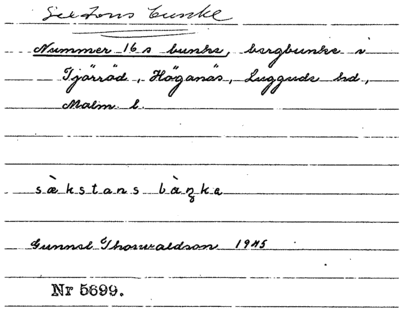 Sextons bunke
Nummer 16s bunke, bergbunke i
Tjörröd, Höganäs, Luggude hd,
Malm. l.
sækstans bàŋka
Gunnel Thorwaldson 1945
Nr 5699.